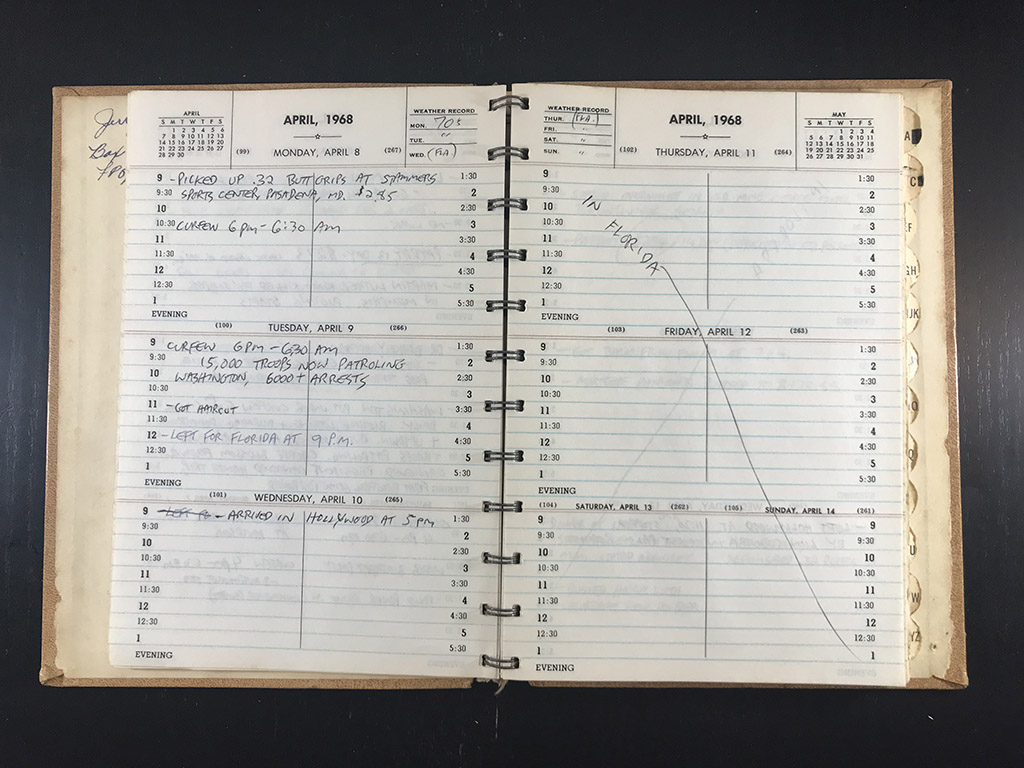 APRIL
S M T W T F S
1 2 3 4 5 6
7 8 9 10 11 12 13
14 15 16 17 18 19 20
21 22 23 24 25 26 27
28 29 30
APRIL, 1968
(99) MONDAY, APRIL 8 (267)
WEATHER RECORD
MON. 70s
TUE. "
WED. (FLA.)
9 - PICKED UP .32 BUTT GRIPS AT STAMMERS 1:30
9:30 SPORTS CENTER, PASADENA, MD. $2.85 2
10 2:30
10:30 CURFEW 6 pm - 6:30 AM 3
11 3:30
11:30 4
12 4:30
12:30 5
1 5:30
EVENING
(100) TUESDAY, APRIL 9 (266)
9 CURFEW 6 PM - 6:30 AM 1:30
9:30 15,000 TROOPS NOW PATROLING 2
10 WASHINGTON, 6000+ ARRESTS 2:30
10:30 3
11 - GOT HAIRCUT 3:30
11:30 4
12 - LEFT FOR FLORIDA AT 9 P.M. 4:30
12:30 5
1 5:30
EVENING
(101) WEDNESDAY, APRIL 10 (265)
9 - ARRIVED IN HOLLYWOOD AT 5 PM 1:30
9:30 2
10 2:30
10:30 3
11 3:30
11:30 4
12 4:30
12:30 5
1 5:30
EVENING
WEATHER RECORD
THUR. (FLA.)
FRI. "
SAT. "
SUN. "
APRIL, 1968
(102) THURSDAY, APRIL 11 (264)
MAY
S M T W T F S
1 2 3 4
5 6 7 8 9 10 11
12 13 14 15 16 17 18
19 20 21 22 23 24 25
26 27 28 29 30 31
9 1:30
9:30 2
10 IN FLORIDA 2:30
10:30 3
11 3:30
11:30 4
12 4:30
12:30 5
1 5:30
EVENING
(103) FRIDAY, APRIL 12 (263)
9 1:30
9:30 2
10 2:30
10:30 3
11 3:30
11:30 4
12 4:30
12:30 5
1 5:30
EVENING
(104) SATURDAY, APRIL 13 (262) (105) SUNDAY, APRIL 14 (261)
9 9
9:30 9:30
10 10
10:30 10:30
11 11
11:30 11:30
12 12
12:30 12:30
1 1
EVENING
A
C
EF
GH
IJK
U
W
YZ